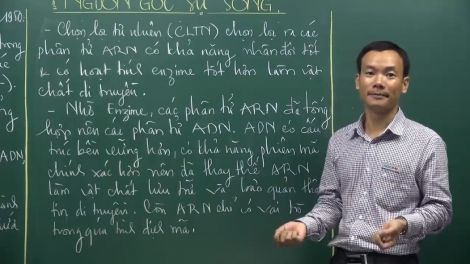 NGUỒN GỐC SỰ SỐNG.
- Chọn lọc tự nhiên (CLTN) chọn lọc ra các
phân tử ARN có khả năng nhân đôi tốt
& có hoạt tính enzime tốt hơn làm vật
chất di truyền.
- Nhờ Enzime, các phân tử ARN đã tổng
hợp nên các phân tử ADN. ADN có cấu
trúc bền vững hơn, có khả năng phiên mã
chính xác hơn nên đã thay thế ARN
làm vật chất lưu trữ và bảo quản
tin di truyền. Còn ARN chỉ có vai
trong quá trình dịch mã.
1950.
trong
các
ADN,